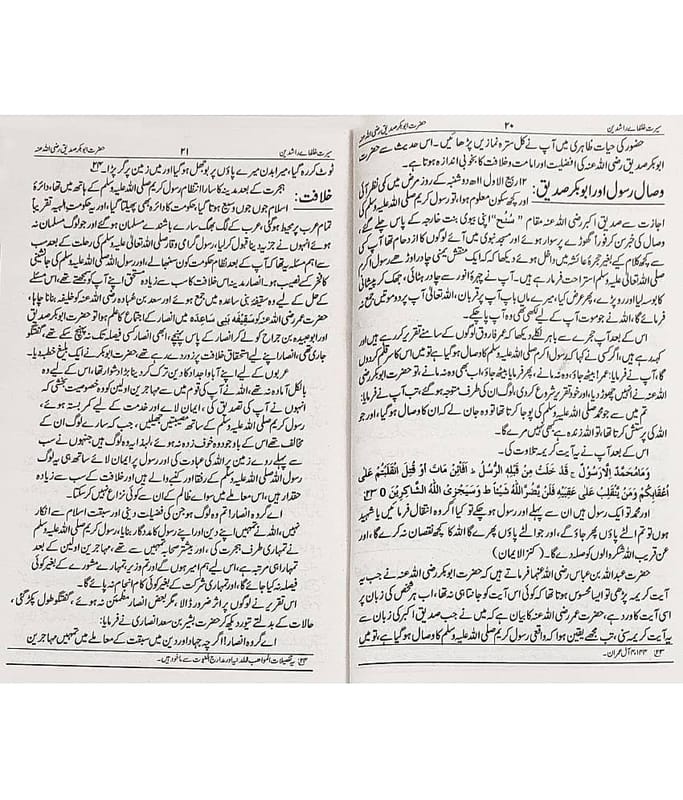 سیرت خلفائے راشدین ۲۰ حضرت ابوبکر صدیق رضی اللہ عنہ
حضور کی حیات ظاہری میں آپ نے کل سترہ نمازیں پڑھائیں۔ اس حدیث سے حضرت
ابوبکر صدیق رضی اللہ عنہ کی افضلیت اور امامت و خلافت کا بخوبی اندازہ ہوتا ہے۔
وصال رسول اور ابوبکر صدیق: ۱۲ ربیع الاول ۱۱ھ دوشنبہ کے روز مرض میں کمی نظر آئی
اور کچھ سکون معلوم ہوا، تو رسول کریم صلی اللہ تعالیٰ علیہ وسلم کی
اجازت سے صدیق اکبر رضی اللہ عنہ مقام "سُنح" اپنی بیوی بنت خارجہ کے پاس چلے گئے،
وصال کی خبر سن کر فوراً گھوڑے پر سوار ہوئے اور مسجد نبوی میں آئے لوگوں کا ازدحام تھا آپ کسی
سے کچھ کلام کیے بغیر حجرۂ عائشہ میں داخل ہوئے دیکھا کہ ایک منقش یمنی چادر اوڑھے رسول اکرم
صلی اللہ تعالیٰ علیہ وسلم استراحت فرما رہے ہیں۔ آپ نے چہرۂ انور سے چادر ہٹائی، جھک کر پیشانی
کا بوسہ لیا اور رو پڑے، پھر عرض کیا، میرے ماں باپ آپ پر قربان، اللہ تعالیٰ آپ پر دو موتیں جمع نہ
فرمائے گا، اللہ نے جو موت آپ کے لیے لکھی تھی وہ آپ پا چکے۔
اس کے بعد آپ حجرے سے باہر نکلے دیکھا کہ عمر فاروق لوگوں کے سامنے تقریر کر رہے ہیں اور
کہہ رہے ہیں، اگر کسی نے کہا کہ رسول اکرم صلی اللہ علیہ وسلم کا وصال ہو گیا ہے تو میں اس کا سر قلم کردوں
گا، آپ نے فرمایا: عمر! بیٹھ جاؤ، وہ نہ مانے، پھر فرمایا بیٹھ جاؤ، اب بھی وہ نہ مانے، تو حضرت ابوبکر رضی
اللہ عنہ نے انہیں چھوڑ دیا، اور خود تقریر شروع کردی، لوگ ان کی طرف متوجہ ہو گئے، تب آپ نے فرمایا:
تم میں سے جو محمد صلی اللہ علیہ وسلم کی پوجا کرتا تھا تو وہ جان لے کہ ان کا وصال ہو گیا، اور جو
اللہ کی پرستش کرتا تھا، تو اللہ زندہ ہے کبھی نہیں مرے گا۔
اس کے بعد آپ نے یہ آیت کریمہ تلاوت کی۔
وَمَا مُحَمَّدٌ اِلَّا رَسُوْلٌ ج قَدْ خَلَتْ مِنْ قَبْلِهِ الرُّسُلُ ط اَفَاْئِنْ مَّاتَ اَوْ قُتِلَ انْقَلَبْتُمْ عَلٰى
اَعْقَابِكُمْ وَمَنْ يَّنْقَلِبْ عَلٰى عَقِبَيْهِ فَلَنْ يَّضُرَّ اللّٰهَ شَيْئاً ط وَسَيَجْزِى اللّٰهُ الشَّاكِرِيْنَ 0 ۲۳
اور محمد تو ایک رسول ہیں ان سے پہلے اور رسول ہو چکے تو کیا اگر وہ انتقال فرمائیں یا شہید
ہوں تو تم الٹے پاؤں پھر جاؤ گے، اور جو الٹے پاؤں پھرے گا اللہ کا کچھ نقصان نہ کرے گا، اور
عن قریب اللہ شکر والوں کو صلہ دے گا۔ (کنز الایمان)
حضرت عبد اللہ بن عباس رضی اللہ عنہما فرماتے ہیں کہ حضرت ابوبکر رضی اللہ عنہ نے جب یہ
آیت کریمہ پڑھی تو ایسا محسوس ہوتا تھا کہ کوئی اس آیت کو جانتا ہی نہ تھا، اب ہر شخص کی زبان پر
اسی آیت کا ورد ہے، حضرت عمر رضی اللہ عنہ کا بیان ہے کہ میں نے جب صدیق اکبر کی زبان سے
یہ آیت کریمہ سنی، تب مجھے یقین ہوا کہ واقعی رسول کریم صلی اللہ علیہ وسلم کا وصال ہو گیا ہے، تو میں
۲۳؎ ۳/۱۴۴، آل عمران۔
سیرت خلفائے راشدین ۲۱ حضرت ابوبکر صدیق رضی اللہ عنہ
ٹوٹ کر رہ گیا، میرا بدن میرے پاؤں پر بوجھل ہو گیا اور میں زمین پر گر پڑا۔ ۲۴
خلافت: ہجرت کے بعد مدینہ کا سارا انتظام رسول کریم صلی اللہ علیہ وسلم کے ہاتھ میں تھا، دائرۂ
اسلام جوں جوں وسیع ہوتا گیا، حکومت کا دائرہ بھی پھیلتا گیا، اور یہ حکومت الٰہیہ تقریباً
تمام عرب پر محیط ہو گئی، عرب کے لگ بھگ سارے باشندے مسلمان ہو گئے اور جو لوگ مسلمان نہ
ہوئے انہوں نے جزیہ دینا قبول کرلیا، رسول گرامی وقار صلی اللہ تعالیٰ علیہ وسلم کی رحلت کے بعد سب
سے اہم مسئلہ یہ تھا کہ آپ کے بعد نظام حکومت کون سنبھالے، اور رسول اللہ صلی اللہ علیہ وسلم کی جانشینی
کا فخر کسے نصیب ہو۔ انصار مدینہ اس خلافت کا سب سے زیادہ مستحق اپنے آپ کو سمجھتے تھے، اس مسئلہ
کے حل کے لیے وہ سقیفہ بنی ساعدہ میں جمع ہوئے اور سعد بن عبادہ رضی اللہ عنہ کو خلیفہ بنانا چاہا،
حضرت عمر رضی اللہ عنہ کو سَقِيْفَه بَنِي سَاعِدَه میں انصار کے اجتماع کا علم ہوا تو حضرت ابوبکر صدیق
اور ابو عبیدہ بن جراح کو لے کر وہاں پہنچے، ابھی انصار کسی فیصلہ تک نہ پہنچ سکے تھے، گفتگو
جاری تھی، انصار اپنے لیے استحقاق خلافت پر زور دے رہے تھے حضرت ابوبکر نے ایک بلیغ خطبہ دیا۔
عربوں کے لیے اپنے آبا و اجداد کا دین ترک کردینا بڑا دشوار تھا، اس کے لیے وہ
بالکل آمادہ نہ تھے، اللہ نے آپ کی قوم میں سے مہاجرین اولین کو وہ خصوصیت بخشی کہ
انہوں نے آپ کی تصدیق کی، ایمان لائے اور خدمت کے لیے کمر بستہ ہوئے،
رسول کریم صلی اللہ علیہ وسلم کے ساتھ مصیبتیں جھیلیں، جب کہ سارے لوگ ان کے
مخالف تھے اس کے باوجود وہ خوف زدہ نہ ہوئے، لہذا یہ وہ لوگ ہیں جنہوں نے سب
سے پہلے روے زمین پر اللہ کی عبادت کی اور رسول پر ایمان لائے ساتھ ہی یہ لوگ
رسول اللہ صلی اللہ علیہ وسلم کے رفقا اور کنبے والے ہیں اور خلافت کے سب سے زیادہ
حقدار ہیں، اس معاملے میں سوائے ظالم کے ان سے کوئی نزاع نہیں کرسکتا۔
اے گروہ انصار! تم وہ لوگ ہو جن کی فضیلت دینی اور سبقت اسلام سے انکار
نہیں، اللہ نے تمہیں اپنے دین اور اپنے رسول کا مددگار بنایا، رسول کریم صلی اللہ علیہ وسلم
نے تمہاری طرف ہجرت کی، اور بیشتر صحابیہ تمہیں سے تھے، مہاجرین اولین کے بعد
تمہارا ہی مرتبہ ہے، اس لیے ہم امیر ہوں گے اور تم وزیر، تمہارے مشورے کے بغیر کوئی
فیصلہ نہ کیا جائے گا، اور تمہاری شرکت کے بغیر کوئی کام انجام نہ پائے گا۔
اس تقریر نے لوگوں پر اثر ضرور ڈالا، مگر بعض انصار مطمئن نہ ہوئے، گفتگو طول پکڑ گئی،
حالات کے بدلتے تیور دیکھ کر حضرت بشیر بن سعد انصاری نے فرمایا:
اے گروہ انصار! اگرچہ جہاد اور دین میں سبقت کے معاملے میں تمہیں مہاجرین
۲۴؎ یہ تفصیلات المواہب اللدنیہ اور مدارج النبوت سے ماخوذ ہیں۔